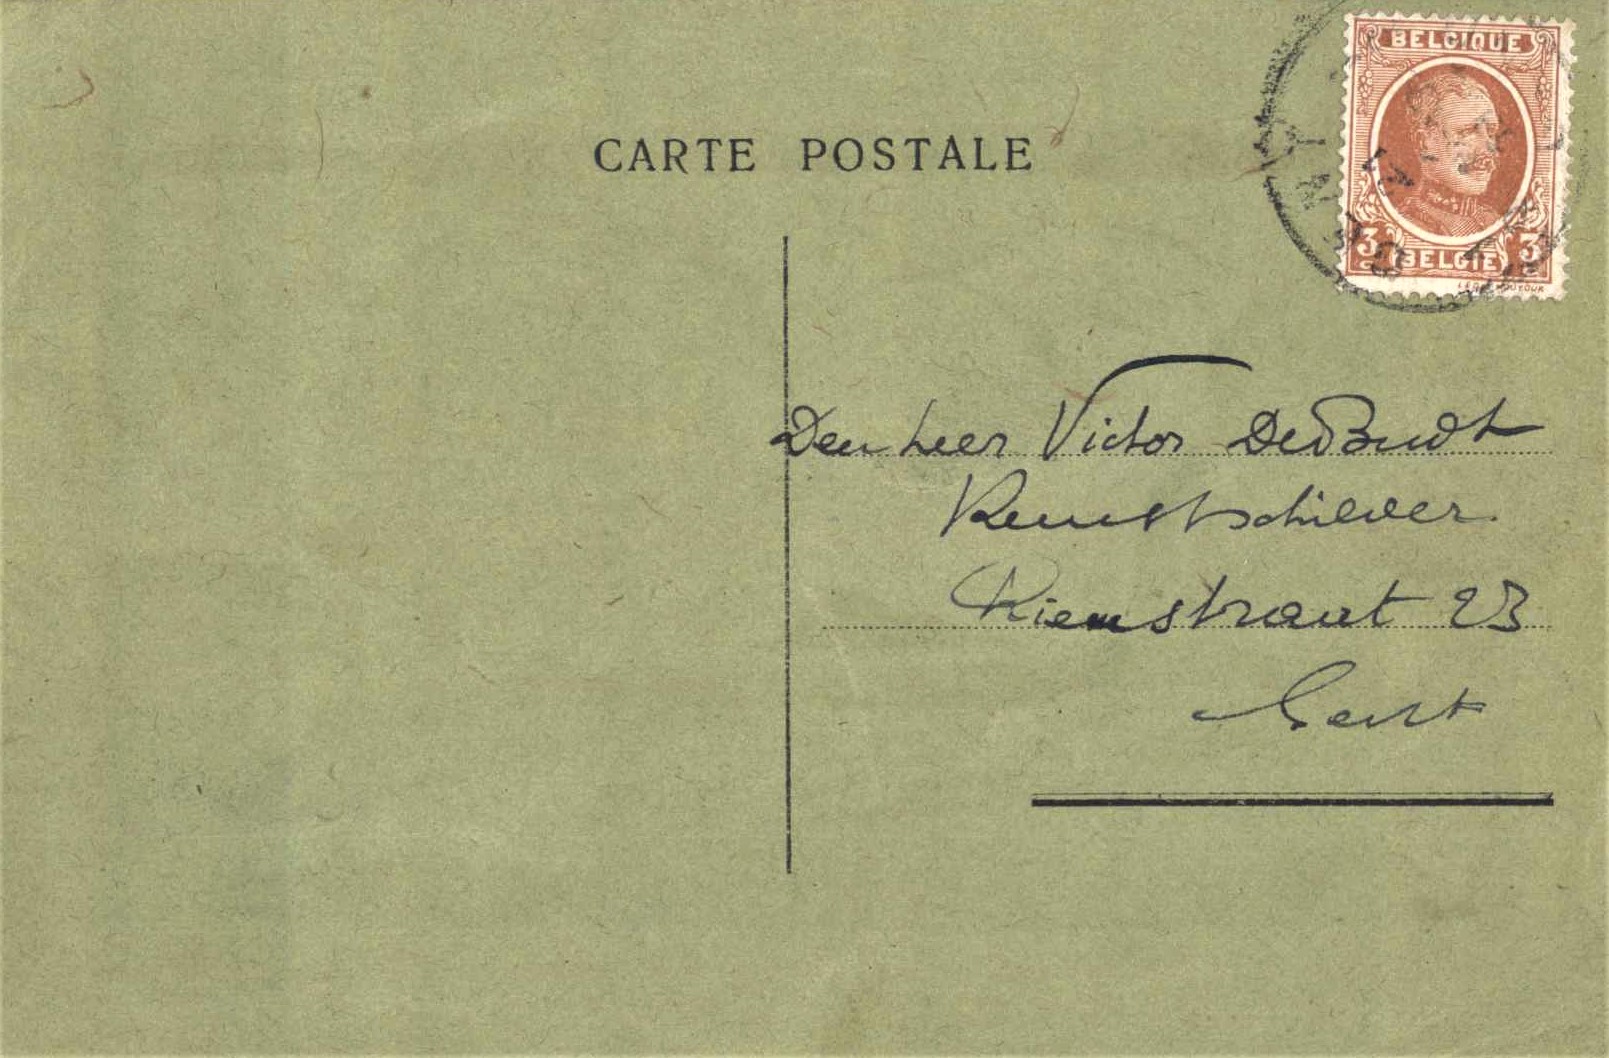 BELGIQUE
CARTE POSTALE
3 BELGIË 3
Den heer Victor De Budt
Kunstschilder
Riemstraat 23
Gent